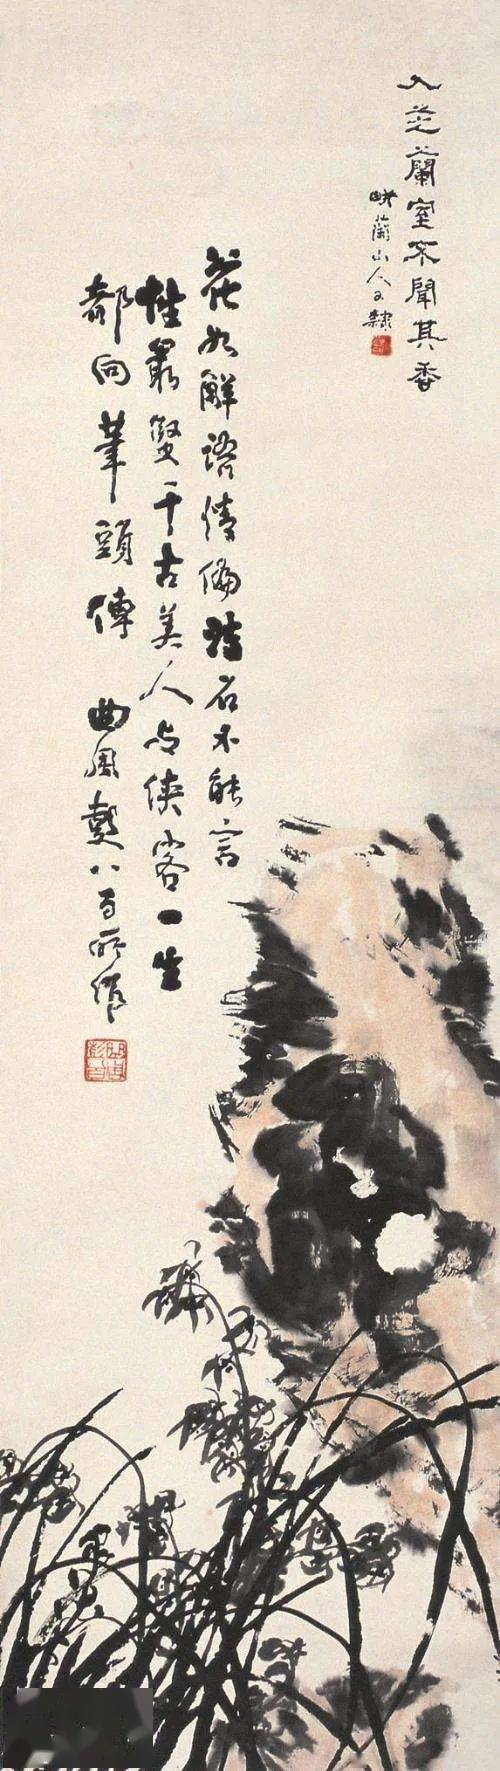 入芝蘭室不聞其香
畹蘭山人又隸
花如解語情偏薄石不能言
性最堅千古美人與俠客一生
都向筆頭傳 曲園叟八百所作